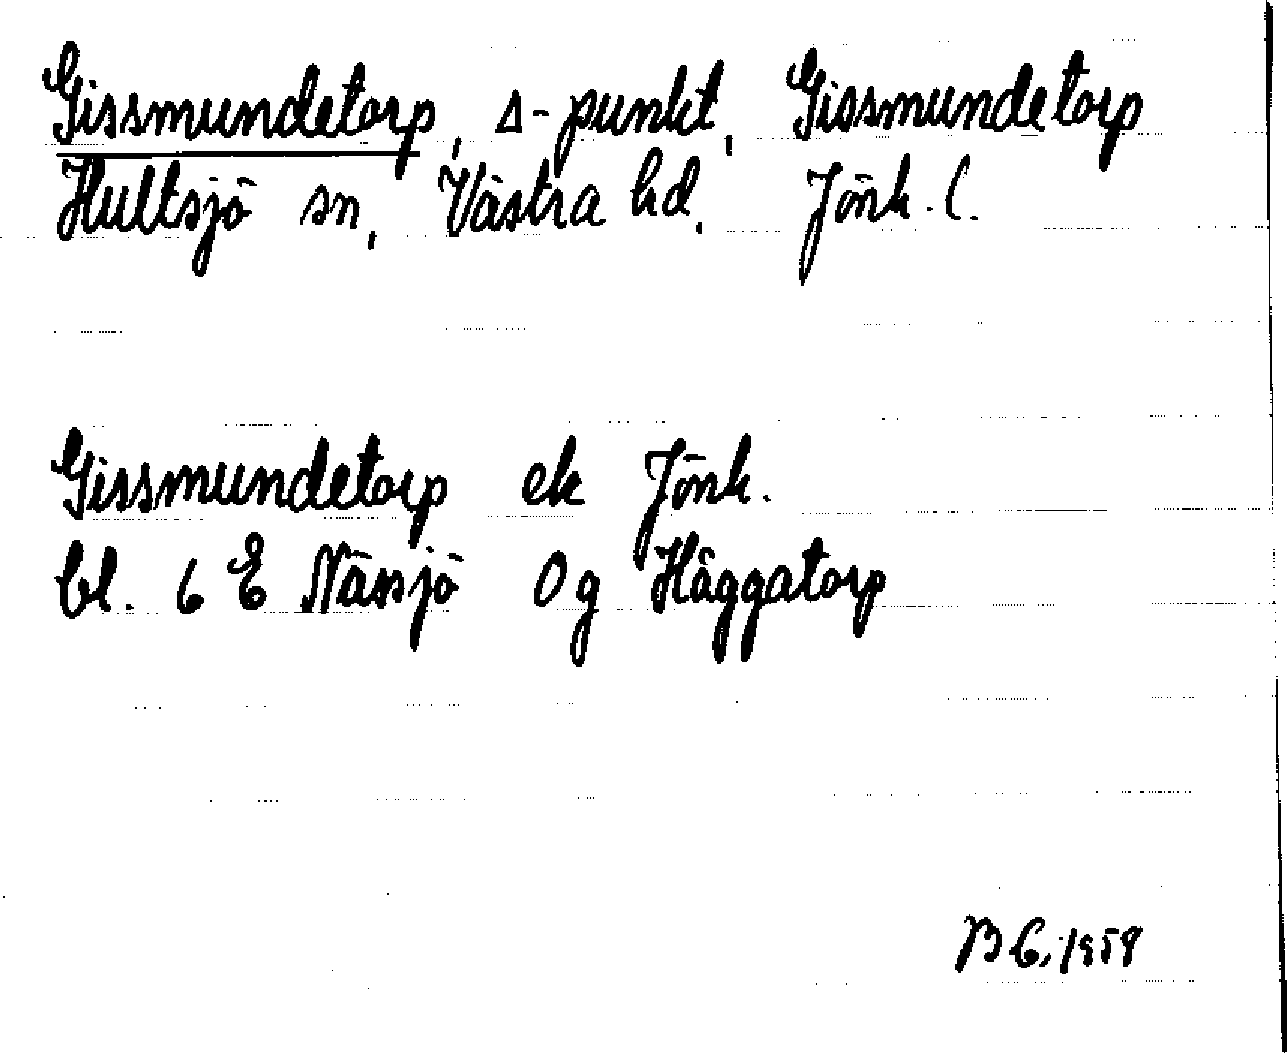 Gissmundetorp, Δ-punkt, Gissmundetorp
Hultsjö sn, Västra hd. Jönk. l.
Gissmundetorp ek Jönk.
bl. 6 E Nässjö 0g Häggatorp
BC, 1959